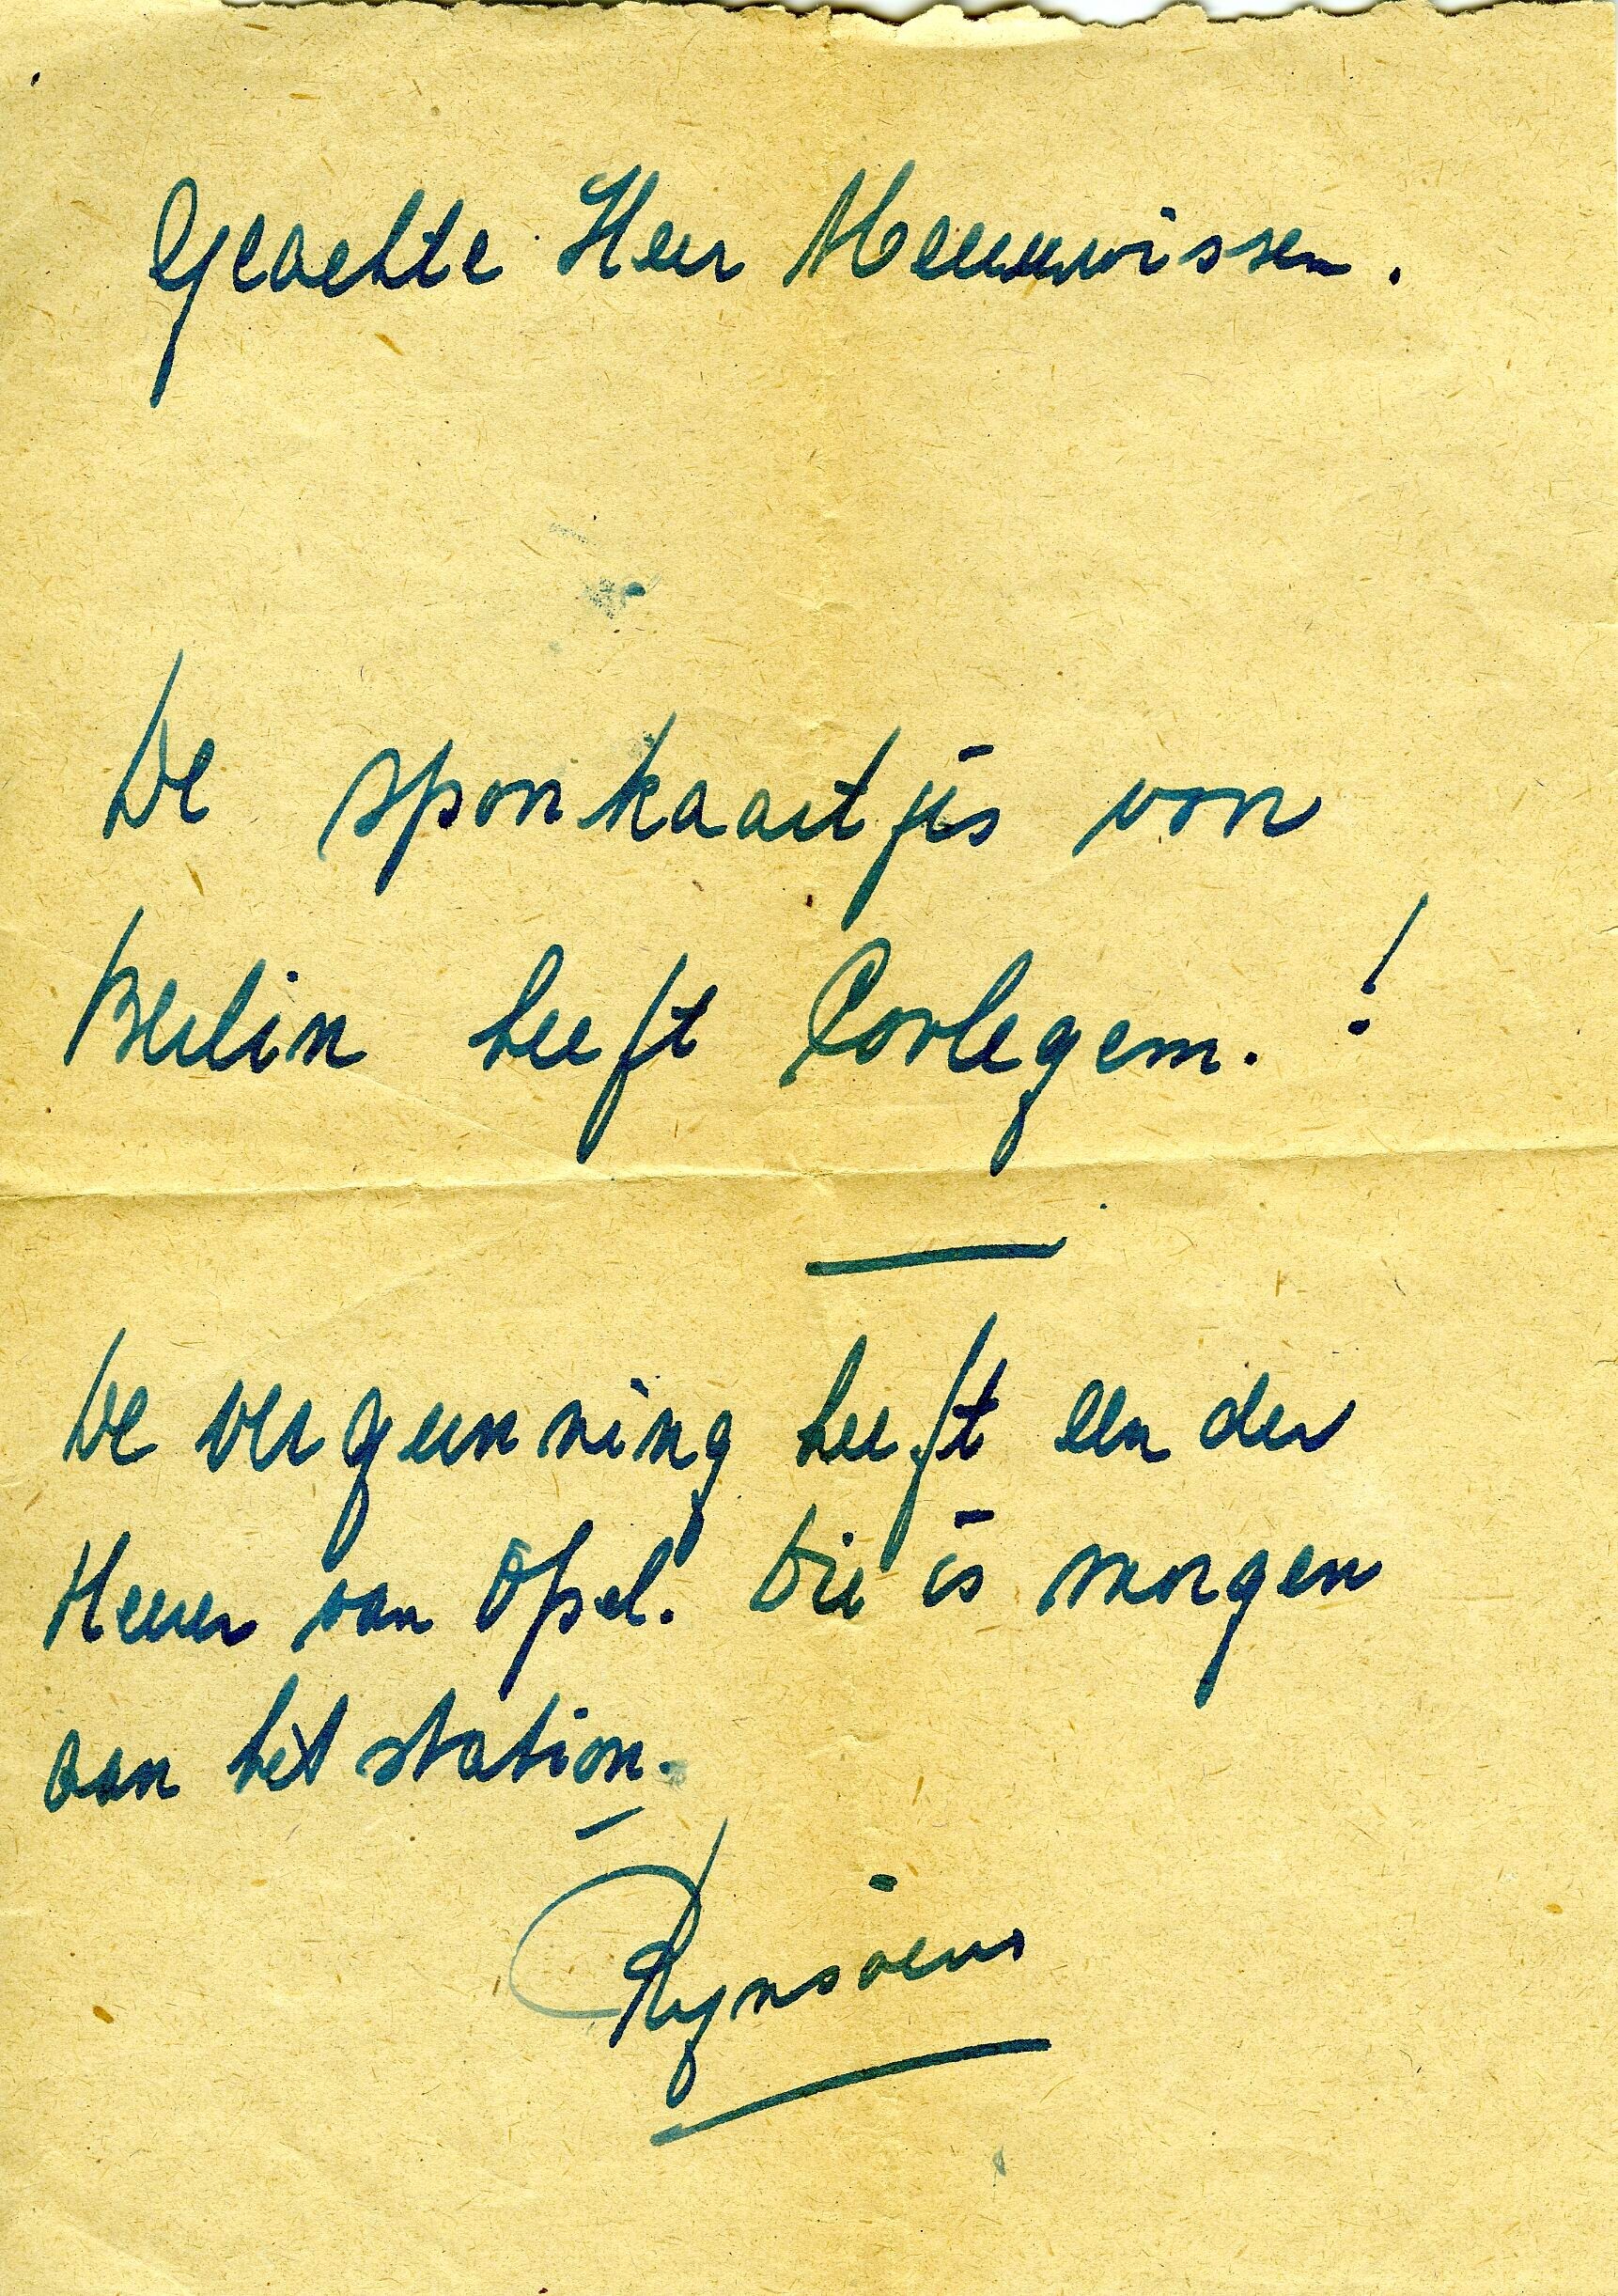 Geachte Heer Meeuwissen.
De spoorkaartjes van
Berlin heeft Corlegem. !
De vergunning heeft een der
Heeren van Opel. Die is morgen
aan het station.